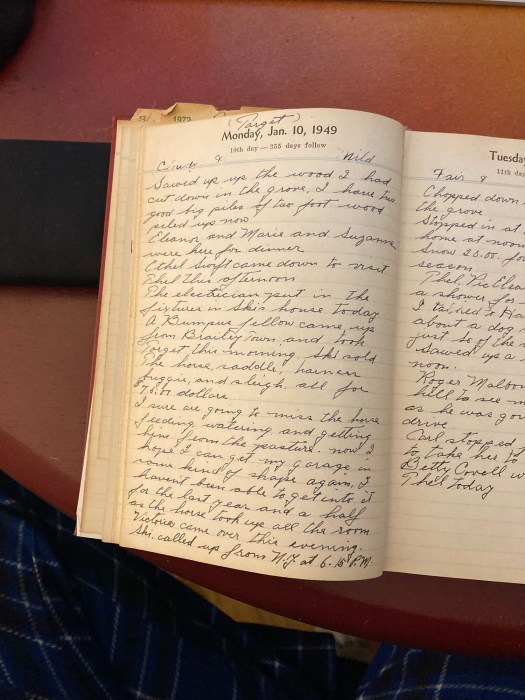 1972
(Target)
Monday, Jan. 10, 1949
10th day — 355 days follow
Cloudy & Mild
Sawed up up the wood I had
cut down in the grove, I have two
good big piles of two foot wood
piled up now
Eleanor and Marie and Suzanne
were here for dinner
Ethel Swift came down to visit
Thel this afternoon
The electrician put in the
fixtures in Ski's house today
A Bumpus fellow came up
from Braileytown, and took
Target this morning, Ski sold
The horse, saddle, harness
buggie, and sleigh all for
dollars
I sure are going to miss the horse
feeding watering and getting
him from the pasture. now I
hope I can get my garage in
some kind of shape again, I
havent been able to get into it
for the last year and a half
as the horse took up all the room
Victoria came over this evening.
Ski called up from N.J. at 6.15 P.M.
Tuesda
11th day
Fair &
Chopped down
the grove
Stopped in at
home at noon
Snow 25.00. fo
season
Thel, Pic Elea
a shower for
I talked to Ha
about a dog
just so of the
Sawed up a
noon.
Roger Maloo
hill to see m
as he was go
drive
Carl stopped
to take her
Betty Covell w
Thel today